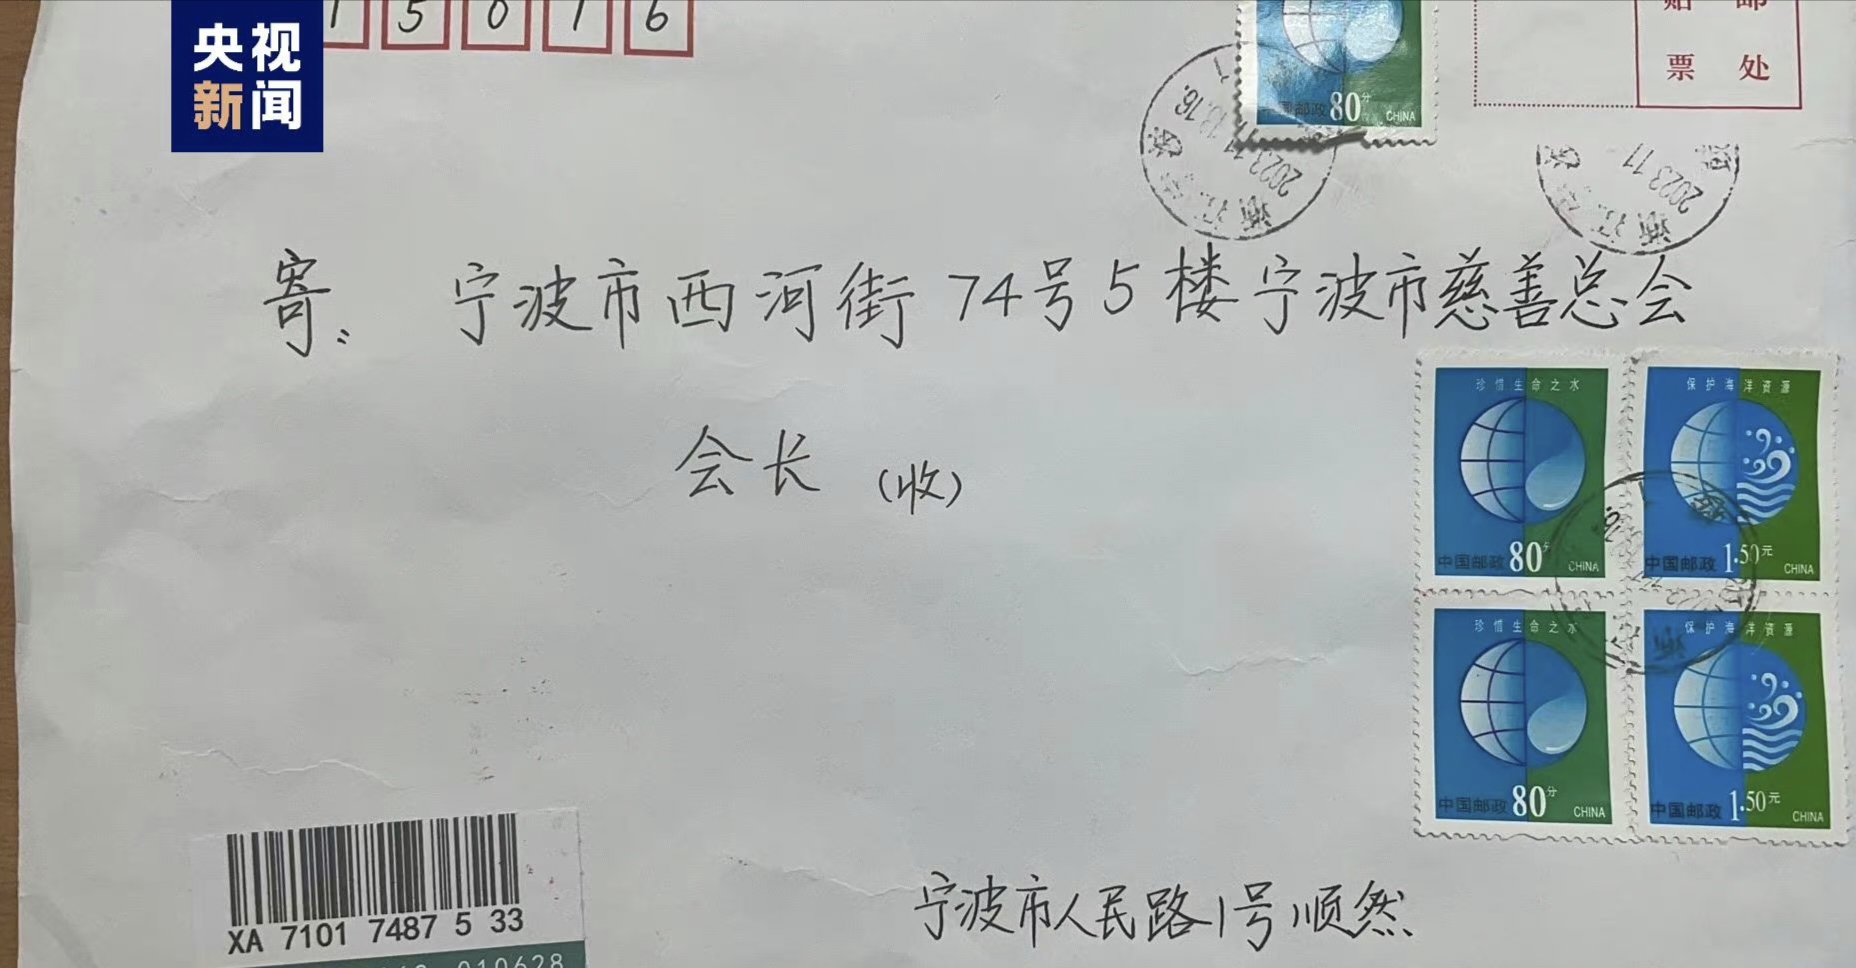 央视
新闻
15016
贴 邮
票 处
中国邮政 80分 CHINA
2023.11.13.16.
浙江
2023.11
浙江
寄: 宁波市西河街74号5楼宁波市慈善总会
会长 (收)
珍惜生命之水
中国邮政 80分 CHINA
保护海洋资源
中国邮政 1.50元 CHINA
珍惜生命之水
中国邮政 80分 CHINA
保护海洋资源
中国邮政 1.50元 CHINA
宁波市人民路1号顺然
XA 7101 7487 5 33
010628